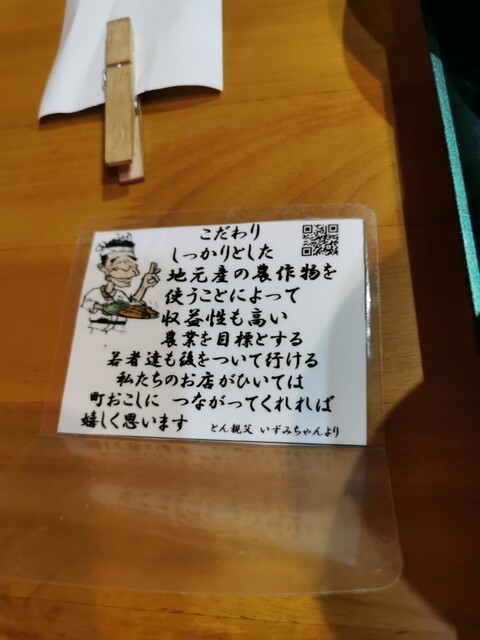 こだわり
しっかりとした
地元産の農作物を
使うことによって
収益性も高い
農業を目標とする
若者達も後をついて行ける
私たちのお店がひいては
町おこしに つながってくれれば
嬉しく思います
とん親父 いずみちゃんより